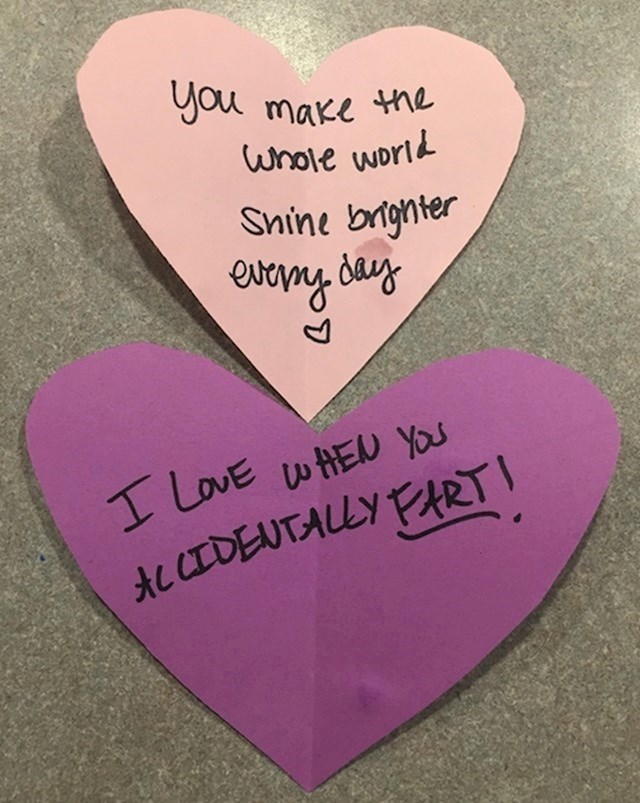 You make the
whole world
shine brighter
every day
♡
I LOVE WHEN YOU
ACCIDENTALLY FART!